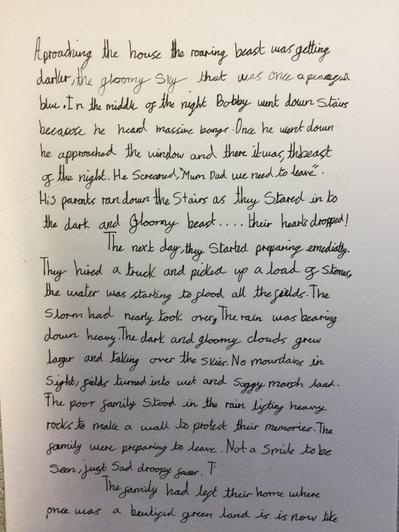 Aproaching the house the roaring beast was getting
darker, the gloomy Sky that was once a peacefull
blue. In the middle of the night Bobby went down Stairs
because he heard massive bangs. Once he went down
he approached the window and there it was, the beast
of the night. He Screamed, "Mum Dad we need to leave".
His parents ran down the Stairs as they Stared in to
the dark and Gloomy beast.... their hearts dropped!
The next day, they Started preparing emediatly.
They hired a truck and picked up a load of Stones,
the water was starting to flood all the fields. The
Storm had nearly took over, The rain was bearing
down heavy. The dark and gloomy clouds grew
lager and taking over the Skies. No mountains in
Sight, fields turned into wet and Soggy marsh land.
The poor family Stood in the rain lifting heavy
rocks to make a wall to protect their memories. The
family were preparing to leave. Not a Smile to be
Seen, just Sad droopy faces. T
The family had left their home where
once was a beutiful green land is is now like